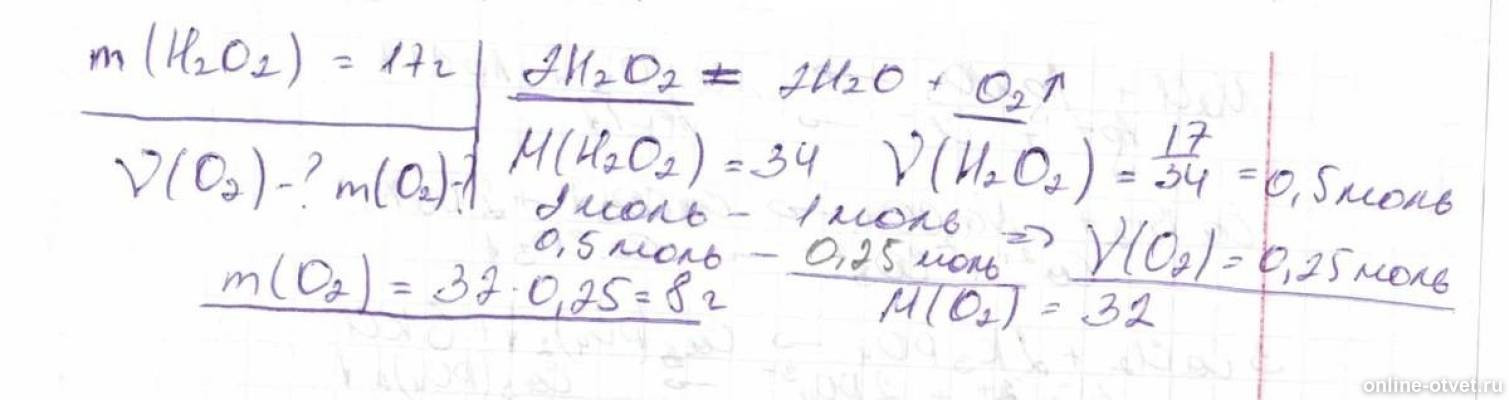 m(H₂O₂) = 17г
ν(O₂)-? m(O₂)-?
2H₂O₂ = 2H₂O + O₂↑
M(H₂O₂) = 34 ν(H₂O₂) = 17/34 = 0,5 моль
2 моль - 1 моль
0,5 моль - 0,25 моль => ν(O₂) = 0,25 моль
M(O₂) = 32
m(O₂) = 32 · 0,25 = 8 г
online-otvet.ru